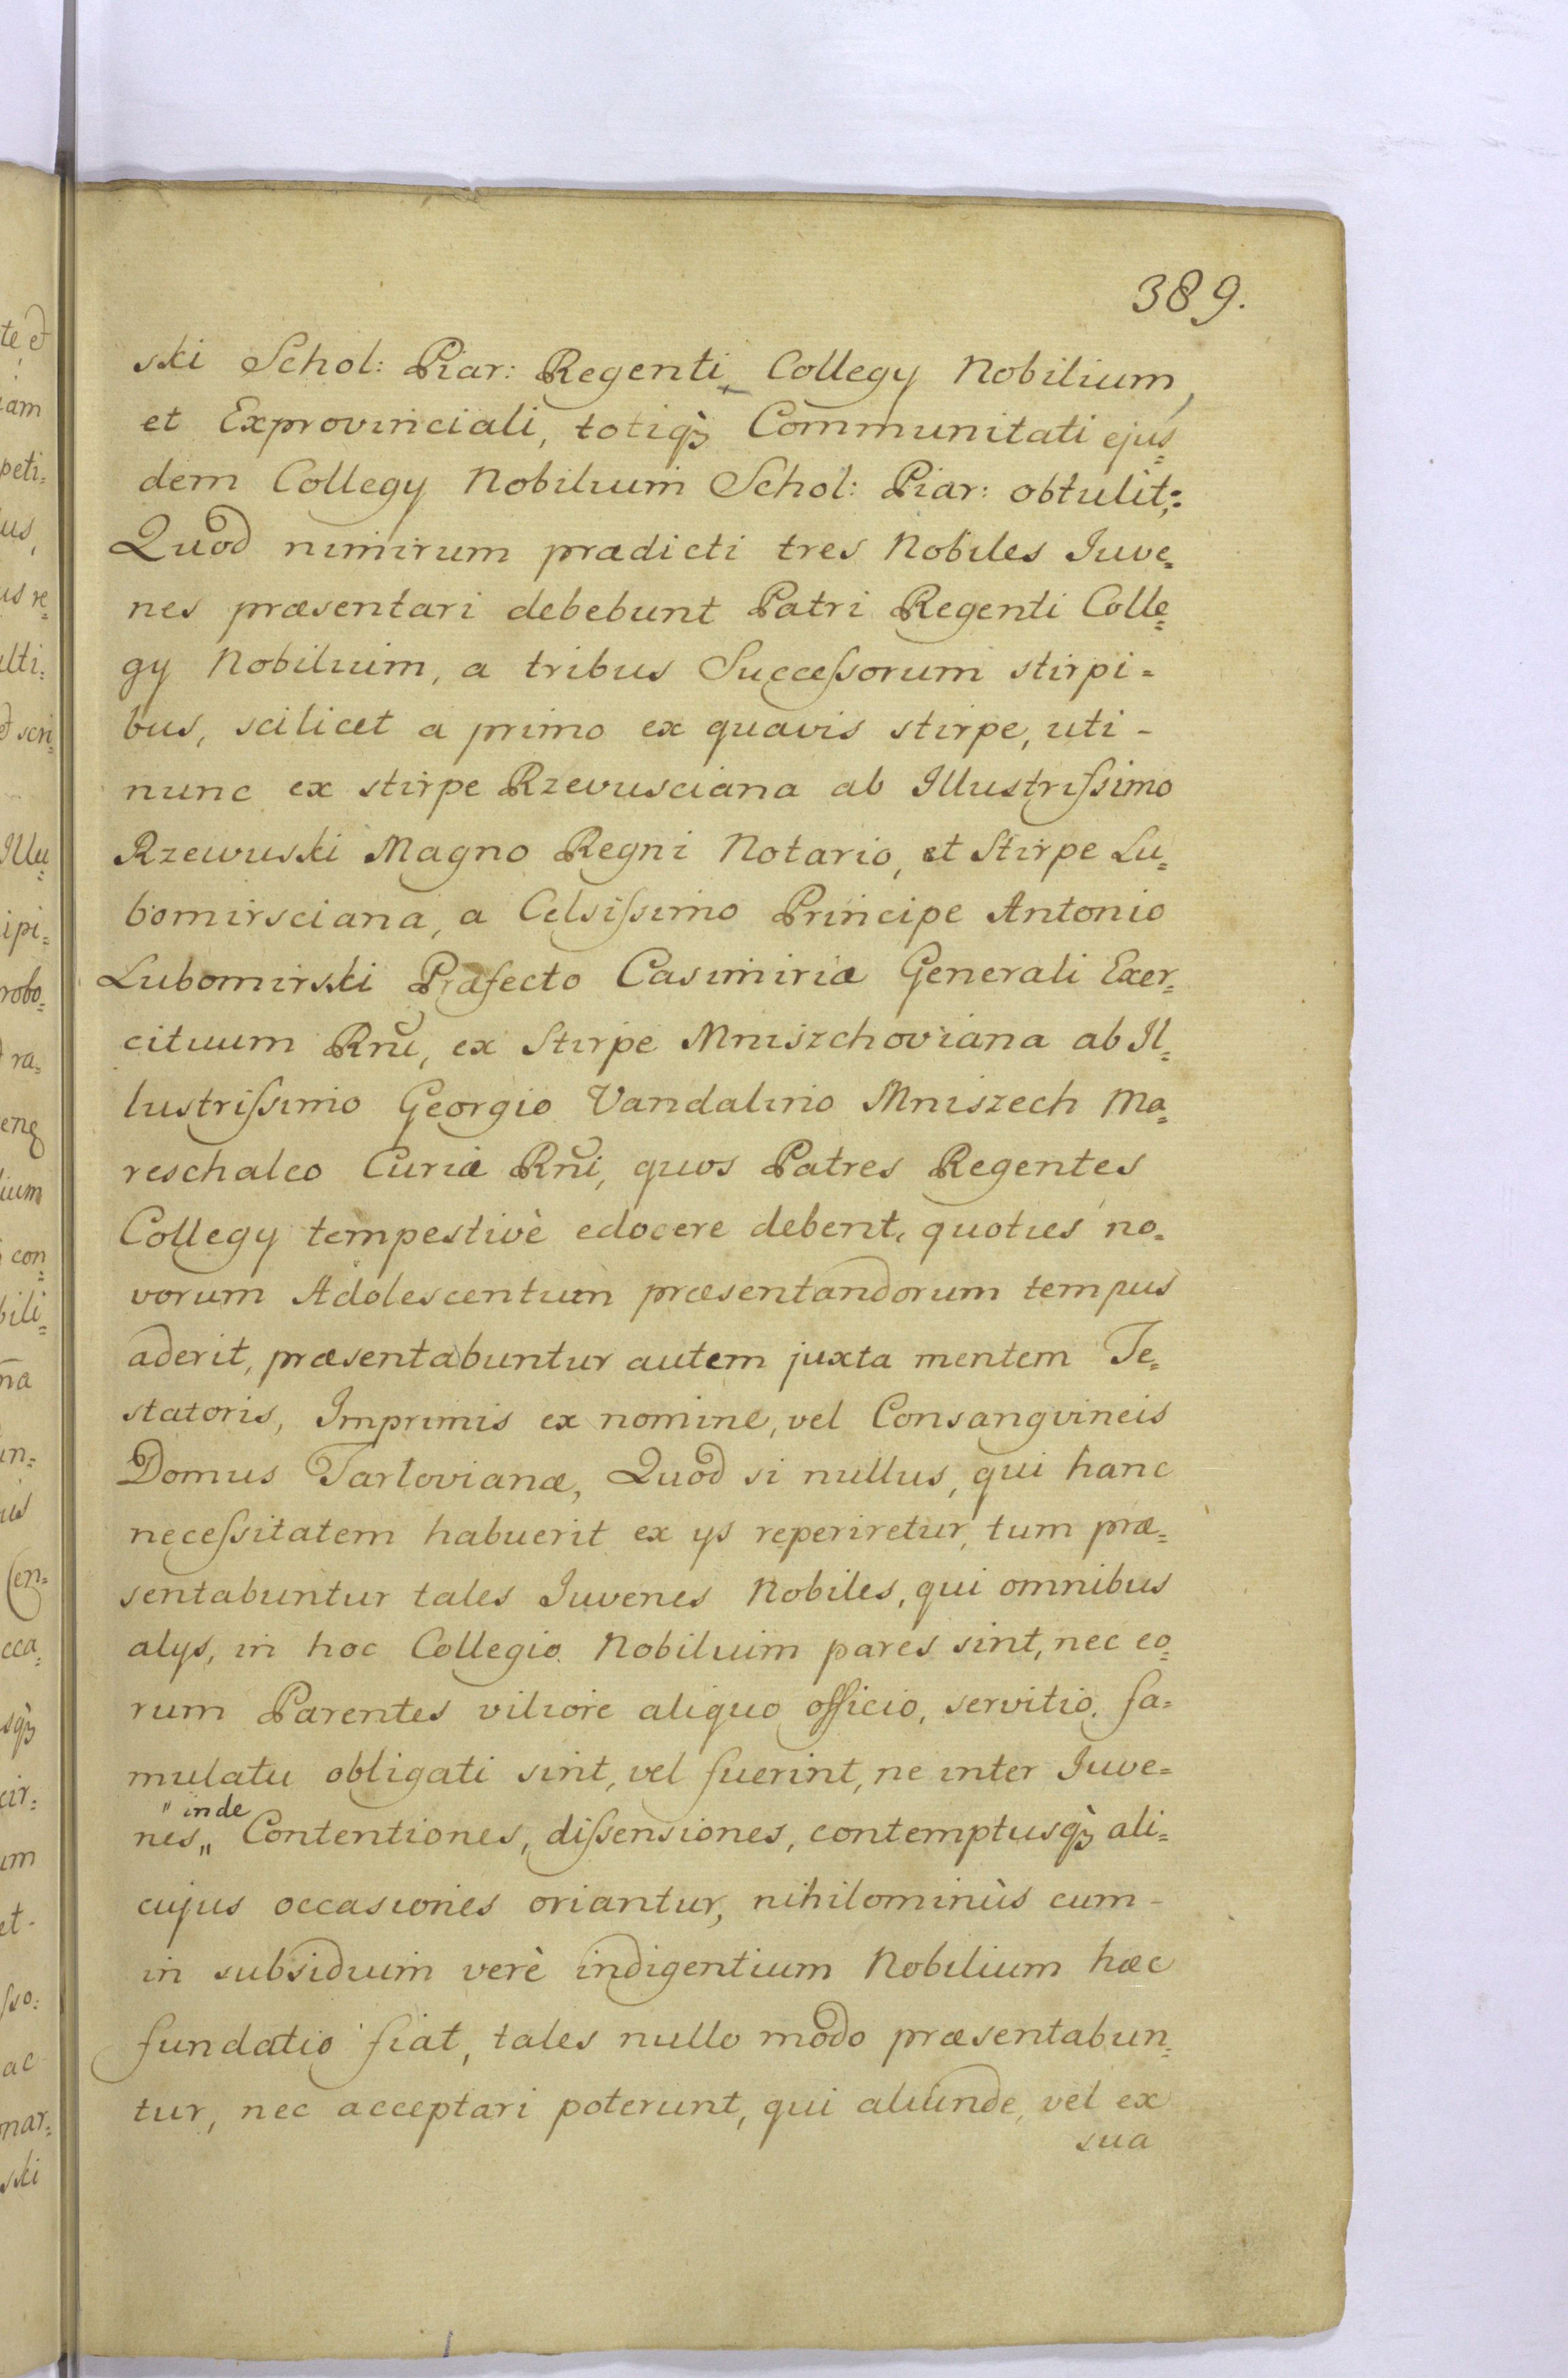 389.
ski Schol: Piar: Regenti Collegy Nobilium,
et Exprovinciali, totiq̀ꝫ Communitati ejus=
dem Collegy Nobilium Schol: Piar: obtulit;
Quod nimirum prædicti tres Nobiles Iuve=
nes præsentari debebunt Patri Regenti Colle=
gy Nobilium, a tribus Succeſsorum stirpi=
bus, scilicet a primo ex quavis stirpe, uti -
nunc ex stirpe Rzevusciana ab Illustriſsimo
Rzewuski Magno Regni Notario, et Stirpe Lu=
bomirsciana, a Celsiſsimo Principe Antonio
Lubomirski Præfecto Casimiriæ Generali Exer=
cituum Rñi, ex Stirpe Mniszchoviana ab Il=
lustriſsimo Georgio Vandalino Mniszech Ma=
reschalco Curiæ Rñi, quos Patres Regentes
Collegy tempestivè edocere debent, quoties no=
vorum Adolescentum præsentandorum tempus
aderit, præsentabuntur autem juxta mentem Te=
statoris, Imprimis ex nomine, vel Consangvineis
Domus Tarlovianæ, Quod si nullus, qui hanc
neceſsitatem habuerit ex ys reperiretur, tum præ=
sentabuntur tales Iuvenes Nobiles, qui omnibus
alys, in hoc Collegio Nobilium pares sint, nec eo=
rum Parentes viliore aliquo officio, servitio, fa=
mulatu obligati sint, vel fuerint, ne inter Iuve=
" inde
nes,, Contentiones, diſsensiones, contemptusq̀ꝫ ali=
cujus occasiones oriantur, nihilominùs cum -
in subsidium verè indigentium Nobilium hæc
fundatio fiat, tales nullo modo præsentabun=
tur, nec acceptari poterunt, qui aliunde, vel ex
sua
te et
iam
peti=
us,
us re=
ulti=
et scri=
Illu=
ipi=
robo=
ra=
ium
con=
bili=
in=
cca=
cir=
um
et -
ſso:
ac
nar=
ski